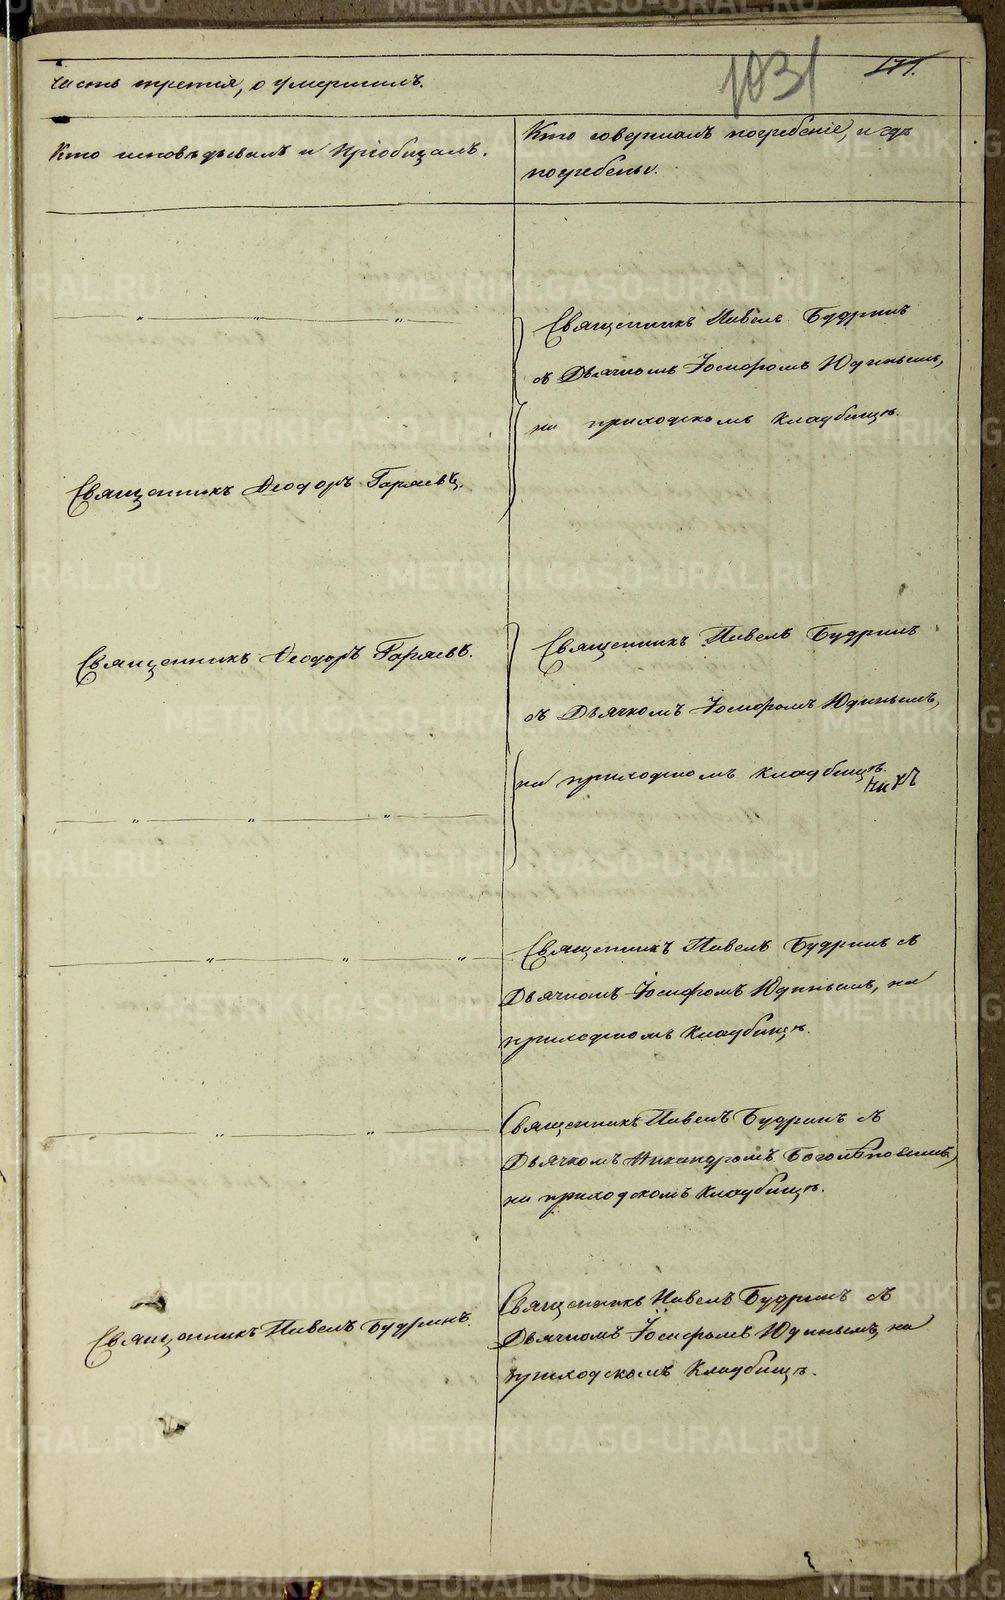 1031
171.
Часть третія, о умершихъ.
Кто исповѣдывалъ и пріобщалъ.
Кто совершалъ погребеніе, и гдѣ
погребены.
Священникъ Павелъ Будринъ
съ Дьячкомъ Іосифомъ Юдинымъ,
на приходскомъ кладбищѣ.
Священникъ Ѳеодоръ Гаряевъ.
Священникъ Ѳеодоръ Гаряевъ.
Священникъ Павелъ Будринъ
съ Дьячкомъ Іосифомъ Юдинымъ,
на приходскомъ кладбищѣ.
Священникъ Павелъ Будринъ съ
Дьячкомъ Іосифомъ Юдинымъ, на
приходскомъ кладбищѣ.
Священникъ Павелъ Будринъ съ
Дьячкомъ Никандромъ Боголѣповымъ,
на приходскомъ кладбищѣ.
Священникъ Павелъ Будринъ.
Священникъ Павелъ Будринъ съ
Дьячкомъ Іосифомъ Юдинымъ, на
приходскомъ кладбищѣ.
METRIKI.GASO-URAL.RU